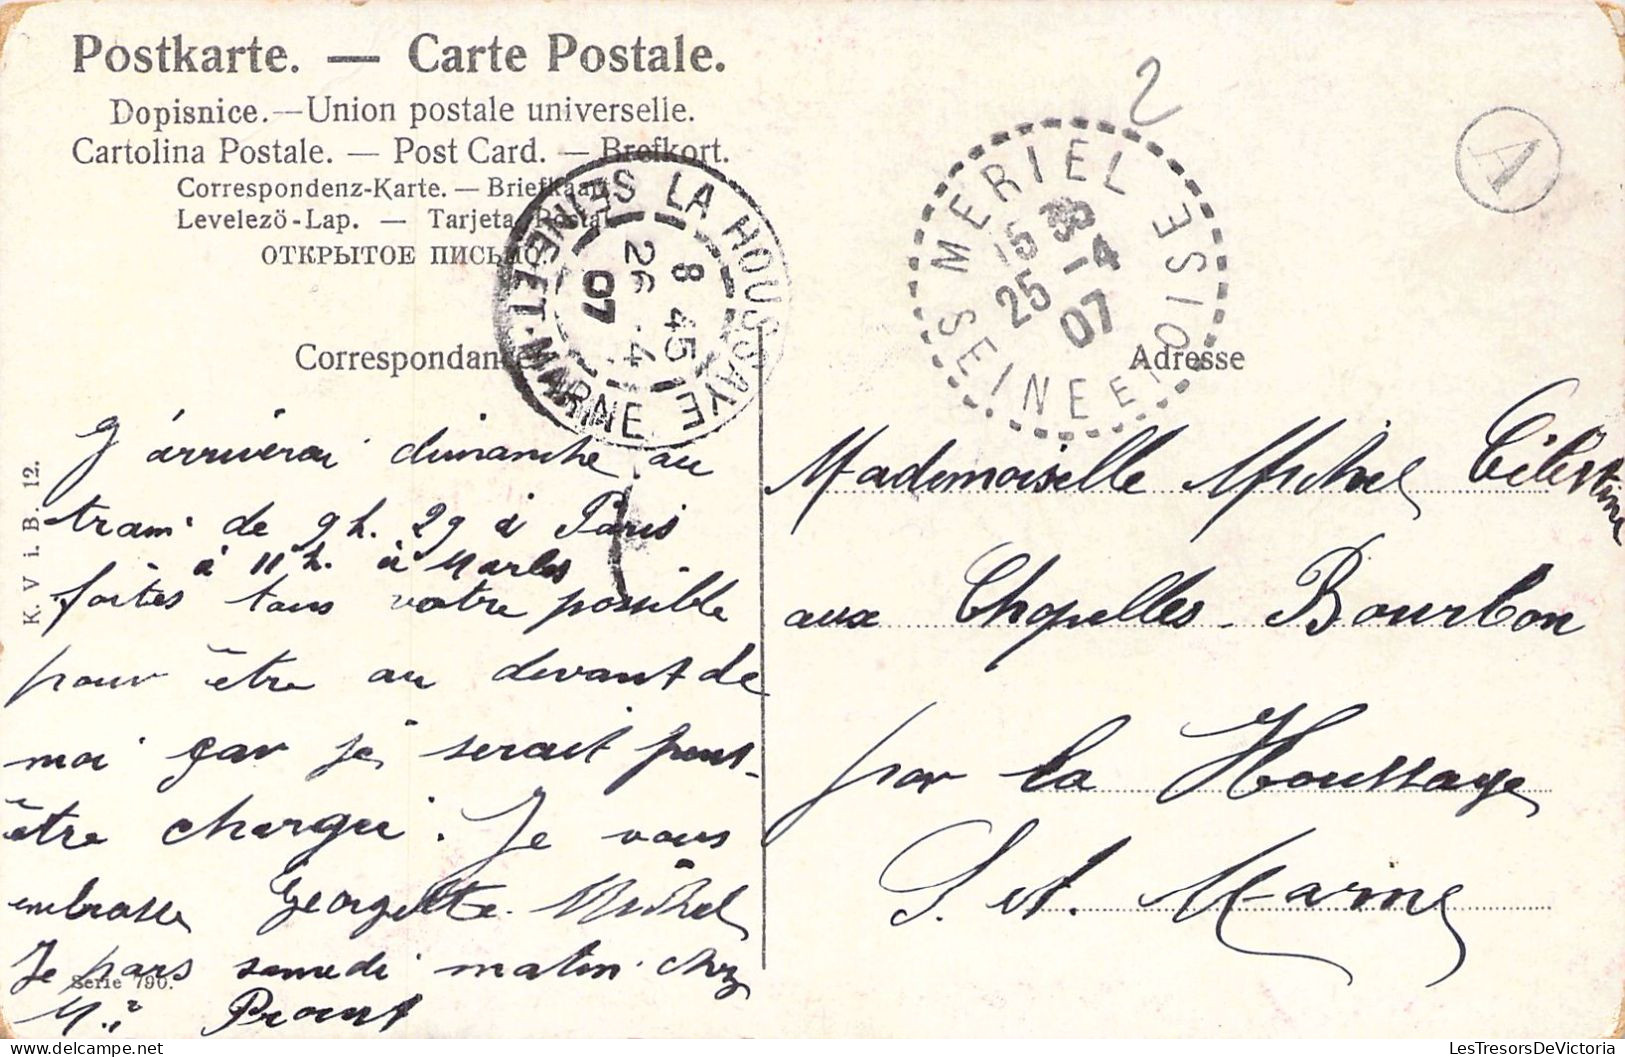 Postkarte. — Carte Postale.
Dopisnice.—Union postale universelle.
Cartolina Postale. — Post Card. — Brefkort.
Correspondenz-Karte. — Briefkaart
Levelezö-Lap. — Tarjeta Postal
ОТКРЫТОЕ ПИСЬМО.
LA HOUSSAYE
SEINE-ET-MARNE
8 45
26 -4
07
MERIEL
SEINE ET OISE
15 30
25 -4
07
2
A
Correspondance
J'arriverai dimanche au
tram de 9h. 29 à Paris
à 11h. à Marles
faites tous votre possible
pour être au devant de
moi çar je serait peut-
être chargée. Je vous
embrasse Georgette Michel
Je pars samedi matin chez
Mr Prout
K. V i. B. 12.
Serie 790.
Adresse
Mademoiselle Michel Célestine
aux Chapelles-Bourbon
par la Houssaye
S. et. Marne
LesTresorsDeVictoria